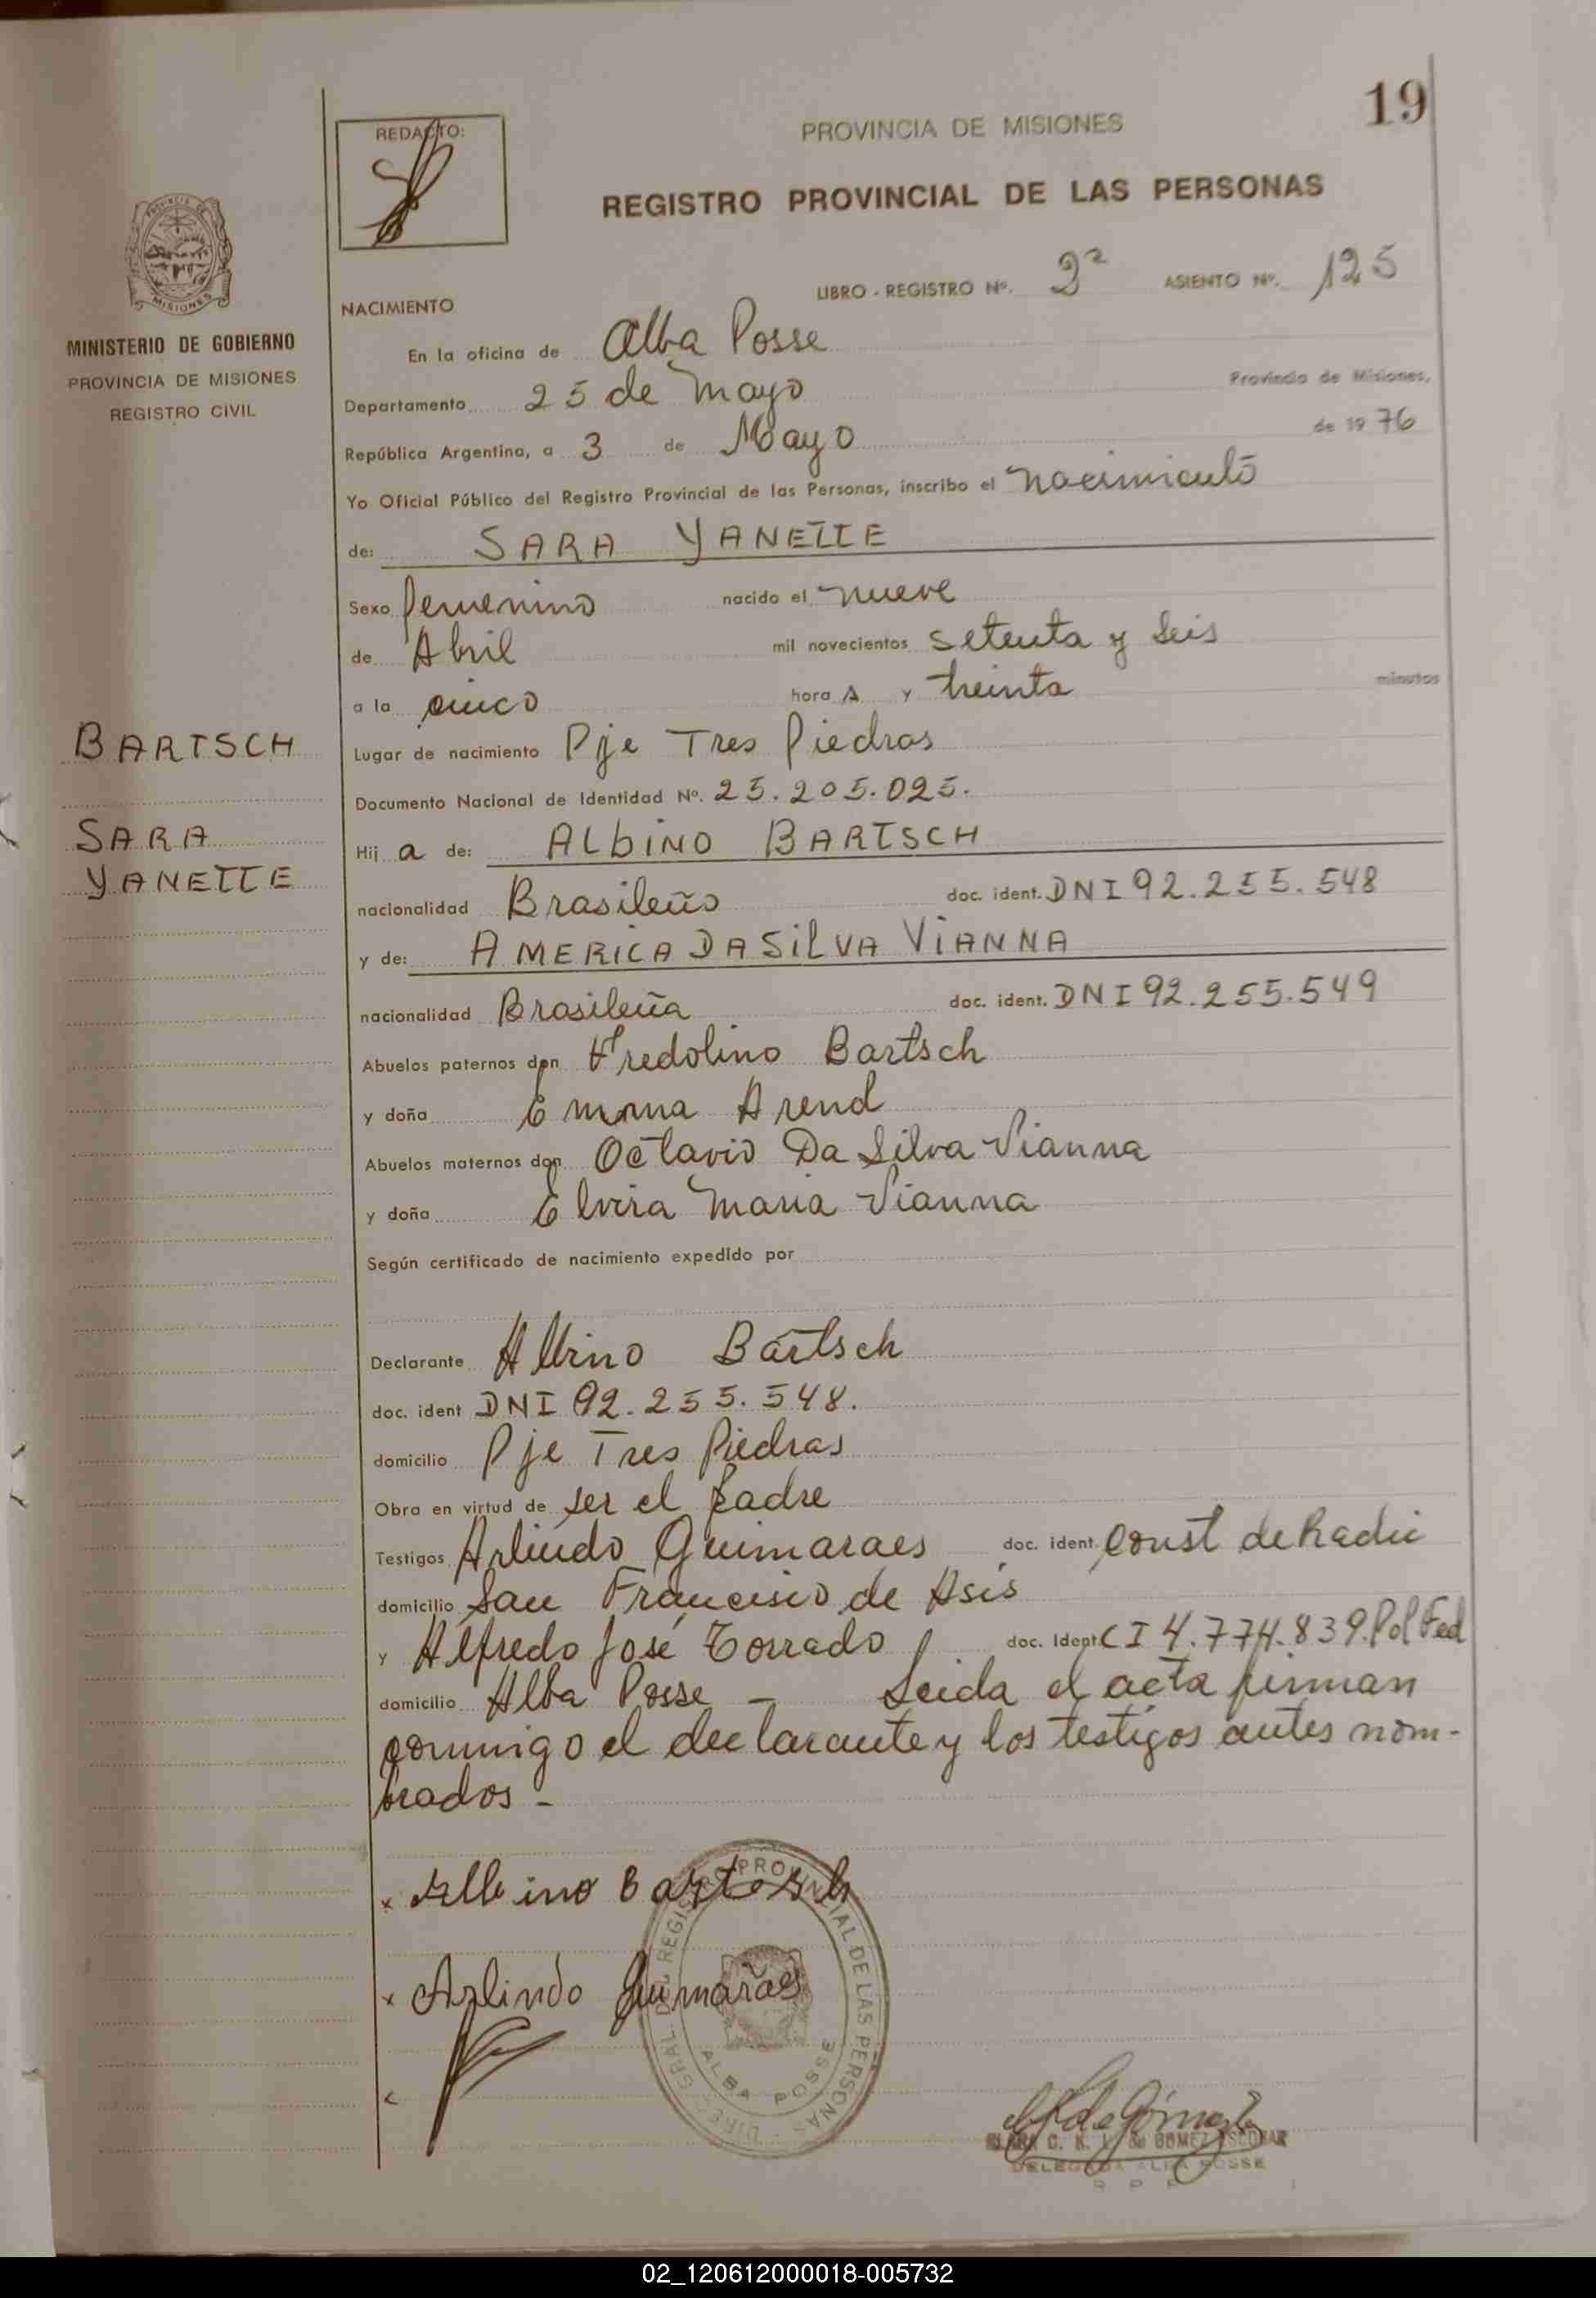 19
REDACTO:
PROVINCIA DE MISIONES
REGISTRO PROVINCIAL DE LAS PERSONAS
LIBRO - REGISTRO Nº. 2º ASIENTO Nº. 125
MISIONES
MINISTERIO DE GOBIERNO
PROVINCIA DE MISIONES
REGISTRO CIVIL
NACIMIENTO
En la oficina de Alba Posse
Departamento 25 de Mayo Provincia de Misiones,
República Argentina, a 3 de Mayo de 1976
Yo Oficial Público del Registro Provincial de las Personas, inscribo el nacimiento
de: SARA YANETTE
Sexo femenino nacido el nueve
de Abril mil novecientos setenta y seis
a la cinco hora s y treinta minutos
BARTSCH
SARA
YANETTE
Lugar de nacimiento Pje Tres Piedras
Documento Nacional de Identidad Nº. 25.205.025.
Hij a de: ALBINO BARTSCH
nacionalidad Brasileño doc. ident. DNI 92.255.548
y de: AMERICA DA SILVA VIANNA
nacionalidad Brasileña doc. ident. DNI 92.255.549
Abuelos paternos don Fredolino Bartsch
y doña Emma Arend
Abuelos maternos don Octavio Da Silva Vianna
y doña Elvira Maria Vianna
Según certificado de nacimiento expedido por
Declarante Albino Bartsch
doc. ident DNI 92.255.548.
domicilio Pje Tres Piedras
Obra en virtud de ser el padre
Testigos Arlindo Guimaraes doc. ident. Const de Radic
domicilio San Francisco de Asís
y Alfredo José Torrado doc. ident CI 4.774.839. Pol Fed
domicilio Alba Posse - Leida el acta firman
conmigo el declarante y los testigos antes nom-
brados -
x Albino Bartsch
x Arlindo Guimarães
DIREC. GRAL. DEL REGISTRO PROVINCIAL DE LAS PERSONAS
ALBA POSSE
CLARA C. K. L. de GOMEZ ESCOBAR
DELEGADA ALBA POSSE
R P P
02_120612000018-005732